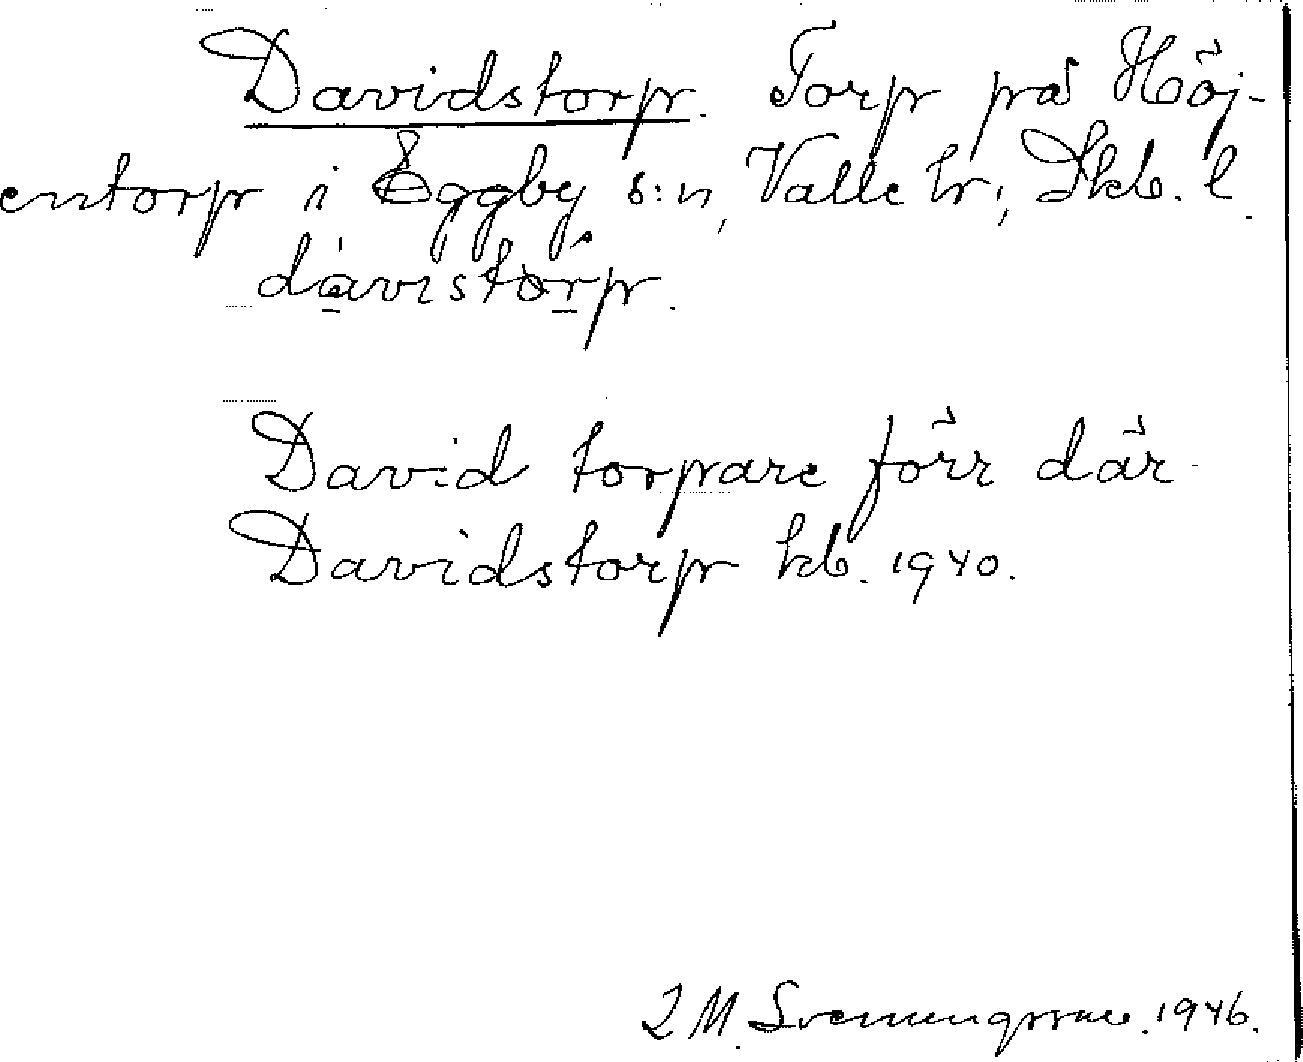 Davidstorp. Torp på Höj-
entorp i Eggby s:n, Valle hr, Skb. l.
davistorp.
David torpare förr där
Davidstorp kb. 1940.
M. 1946.